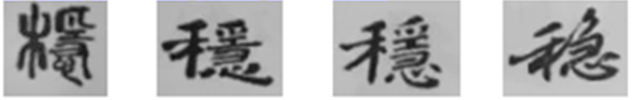 穩 穩 穩 稳